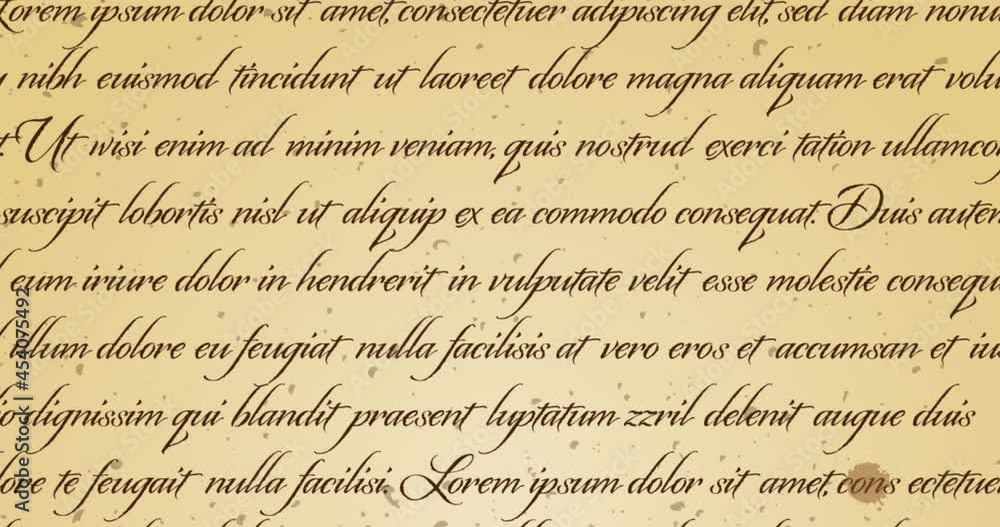 Lorem ipsum dolor sit amet, consectetuer adipiscing elit, sed diam nonu
nibh euismod tincidunt ut laoreet dolore magna aliquam erat volu
t. Ut wisi enim ad minim veniam, quis nostrud exerci tation ullamco
suscipit lobortis nisl ut aliquip ex ea commodo consequat. Duis autem
eum iriure dolor in hendrerit in vulputate velit esse molestie consequ
illum dolore eu feugiat nulla facilisis at vero eros et accumsan et iu
io dignissim qui blandit praesent luptatum zzril delenit augue duis
lore te feugait nulla facilisi. Lorem ipsum dolor sit amet, cons ectetue
Adobe Stock | #454075492